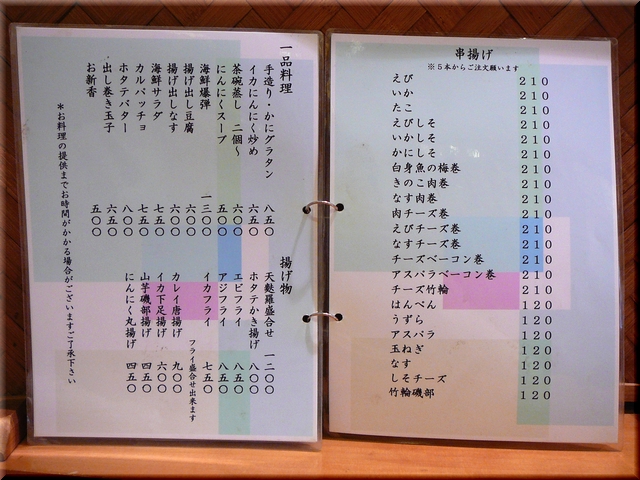 一品料理
手造り・かにグラタン 八五〇
イカにんにく炒め 六五〇
茶碗蒸し 二個〜 六〇〇
にんにくスープ 五〇〇
海鮮爆弾 一三〇〇
揚げ出し豆腐 六〇〇
揚げ出しなす 六〇〇
海鮮サラダ 七五〇
カルパッチョ 七五〇
ホタテバター 八〇〇
出し巻き玉子 六五〇
お新香 五〇〇
揚げ物
天麩羅盛合せ 一二〇〇
ホタテかき揚げ 八〇〇
エビフライ 八五〇
アジフライ 八五〇
イカフライ 七五〇
フライ盛合せ出来ます
カレイ唐揚げ 九〇〇
イカ下足揚げ 六〇〇
山芋磯部揚げ 四五〇
にんにく丸揚げ 四五〇
＊お料理の提供までお時間がかかる場合がございますご了承下さい
串揚げ
※５本からご注文願います
えび ２１０
いか ２１０
たこ ２１０
えびしそ ２１０
いかしそ ２１０
かにしそ ２１０
白身魚の梅巻 ２１０
きのこ肉巻 ２１０
なす肉巻 ２１０
肉チーズ巻 ２１０
えびチーズ巻 ２１０
なすチーズ巻 ２１０
チーズベーコン巻 ２１０
アスパラベーコン巻 ２１０
チーズ竹輪 ２１０
はんぺん １２０
うずら １２０
アスパラ １２０
玉ねぎ １２０
なす １２０
しそチーズ １２０
竹輪磯部 １２０